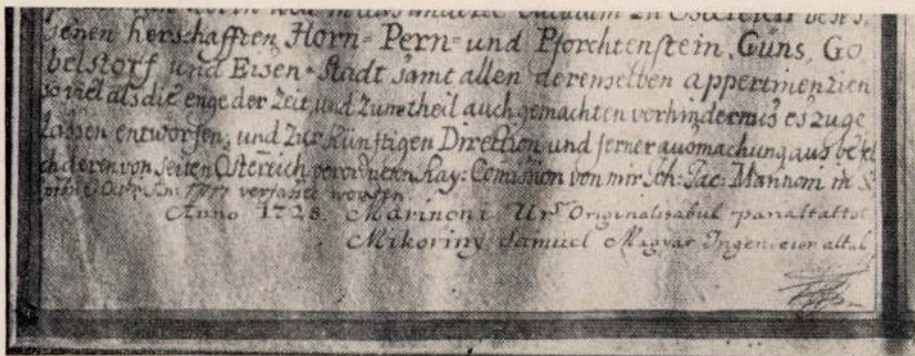 in das andere
jenen herschafften Horn= Pern= und Pforchtenstein, Güns, Go
belstorf und Eisen=Stadt samt allen derenselben appertinenzien
so viel als die enge der Zeit, und Zum theil auch gemachten verhindernus es zuge
lassen entworfen, und Zur Künftigen Direction und ferner ausmachung aus
anderen von seiten Östereich verordneten Kay: Comission von mir Joh: Jac: Marinoni in
verfasst worden.
Anno 1728. Marinoni Ur Originalisabul
Mikoviny Samuel Magyar Ingenieur altal